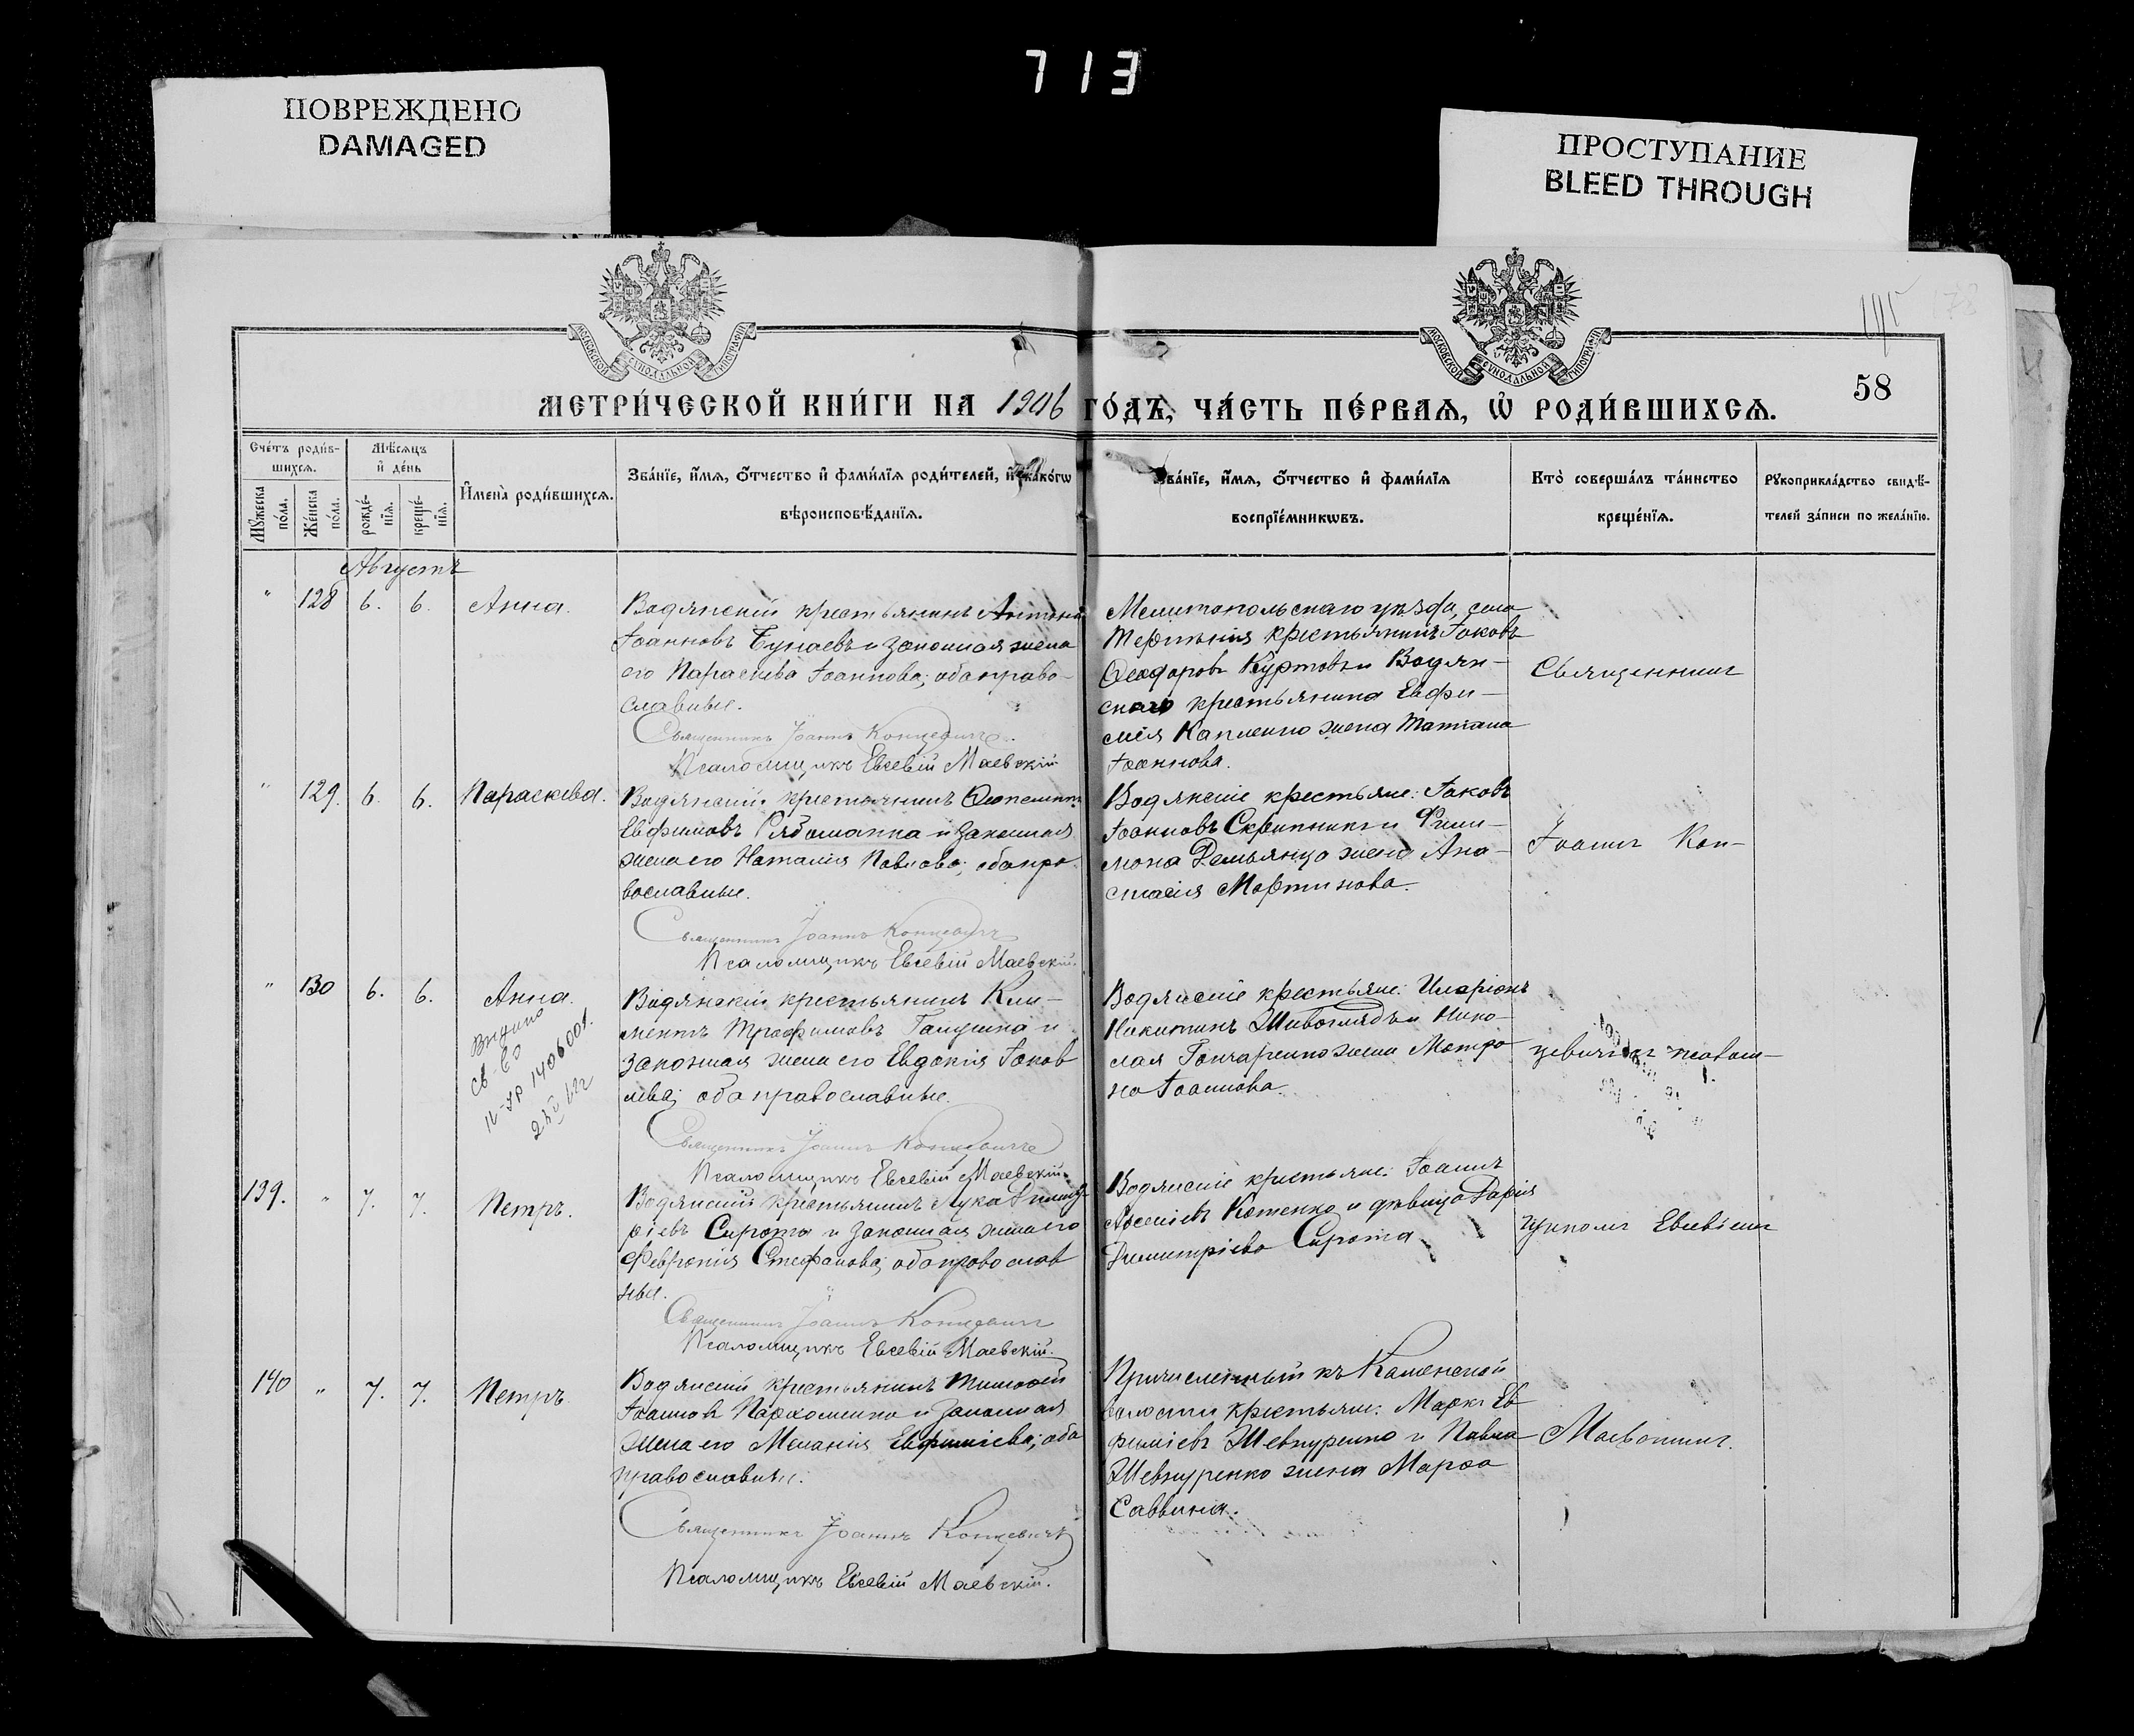 713
ПОВРЕЖДЕНО
DAMAGED
ПРОСТУПАНИЕ
BLEED THROUGH
МОСКОВСКОЙ СѴНОДАЛЬНОЙ ТИПОГРАФІИ
МОСКОВСКОЙ СѴНОДАЛЬНОЙ ТИПОГРАФІИ
58
МЕТРИ́ЧЕСКОЙ КНИ́ГИ НА 1906 ГО́ДЪ, ЧА́СТЬ ПЕ́РВАѦ, Ѡ҆ РОДИ́ВШИХСѦ.
Сче́тъ роди́в-
шихсѧ.
Мꙋжеска по́ла.
Же́нска по́ла.
Мѣ́сѧцъ
и҆ де́нь
рожде́-
нїѧ.
креще́-
нїѧ.
И҆мена̀ роди́вшихсѧ.
Зва́нїе, и҆́мѧ, ѻ҆́тчество и҆ фами́лїѧ роди́телей, и҆ како́гѡ
вѣроисповѣ́данїѧ.
Зва́нїе, и҆́мѧ, ѻ҆́тчество и҆ фами́лїѧ
воспрїе́мникѡвъ.
Кто̀ соверша́лъ та́инство
креще́нїѧ.
Рꙋкоприкла́дство свидѣ́-
телей за́писи по жела́нїю.
Августъ
" 128 6. 6. Анна.
Водянскій крестьянинъ Антоній
Іоанновъ Бунаевъ и законная жена
его Параскева Іоаннова; оба право-
славные.
Священникъ Іоаннъ Концевичъ.
Псаломщикъ Евсевій Маевскій
Мелитопольскаго уѣзда, села
Терпѣнія крестьянинъ Іаковъ
Ѳеодоровъ Куртовъ и Водян-
скаго крестьянина Евфи-
мія Капленко жена Татіана
Іоаннова.
Священник
" 129. 6. 6. Параскева.
Водянскій крестьянинъ Ѳеопемптъ
Евфимовъ Рябошапка и законная
жена его Наталія Павлова; оба пра-
вославные.
Священникъ Іоаннъ Концевичъ
Псаломщикъ Евсевій Маевскій.
Водянскіе крестьяне: Іаковъ
Іоанновъ Скрипникъ и Фили-
мона Демьянца жена Ана-
стасія Мартинова.
Іоанн Кон-
" 130 6. 6. Анна.
Выдано
св-во
1406001.
Водянскій крестьянинъ Кли-
ментъ Трофимовъ Галушка и
законная жена его Евдокія Іаков
лева; оба православные.
Священникъ Іоаннъ Концевичъ
Псаломщикъ Евсевій Маевскій.
Водянскіе крестьяне: Иларіонъ
Никитинъ Живоглядъ и Нико-
лая Гончаренко жена Матро
на Іоаннова.
цевич псалом-
139. " 7. 7. Петръ.
Водянскій крестьянинъ Лука Димит-
ріевъ Сирота и законная жена его
Февронія Стефанова; оба православ
ные.
Священникъ Іоаннъ Концевичъ
Псаломщикъ Евсевій Маевскій.
Водянскіе крестьяне: Іоаннъ
Котенко и дѣвица Дарія
Димитріева Сирота
щиком Евсевіем
140 " 7. 7. Петръ
Водянскій крестьянинъ Тимоѳей
Іоаннов Пархоменко и законная
жена его Меланія Евфиміева; оба
православные.
Священникъ Іоаннъ Концевичъ
Псаломщикъ Евсевій Маевскій.
Причисленный къ Каменской
волости крестьяне: Маркъ Ев
фиміевъ Шевкуренко и Павла
Шевкуренко жена Марѳа
Саввина.
Маевским.